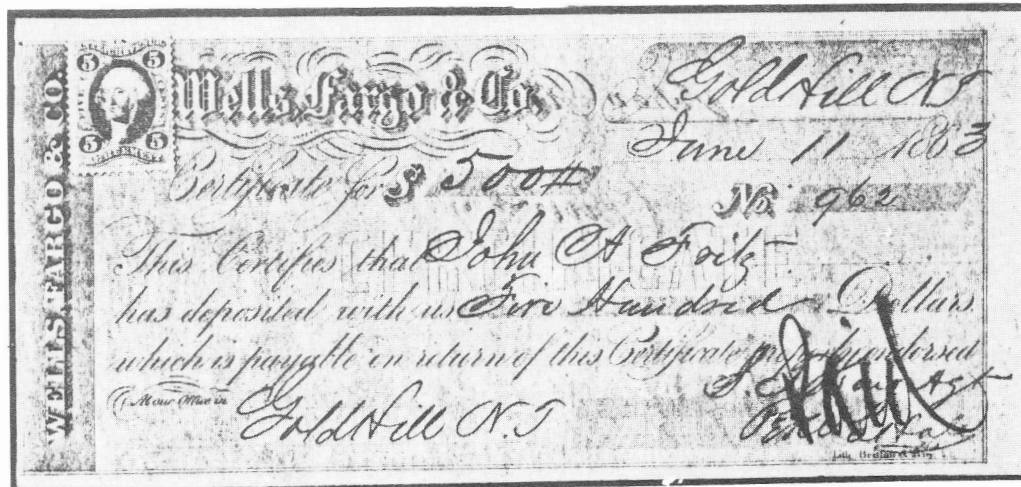 WELLS FARGO & CO.
5 5
5 5
Wells, Fargo & Co.
Gold Hill N T
June 11 1863
Certificate for $ 500
No. 962
This Certifies that John A Fritz
has deposited with us Five Hundred Dollars
which is payable on return of this Certificate endorsed
At our Office in
Gold Hill N.T
Agt
Paid
Lith.